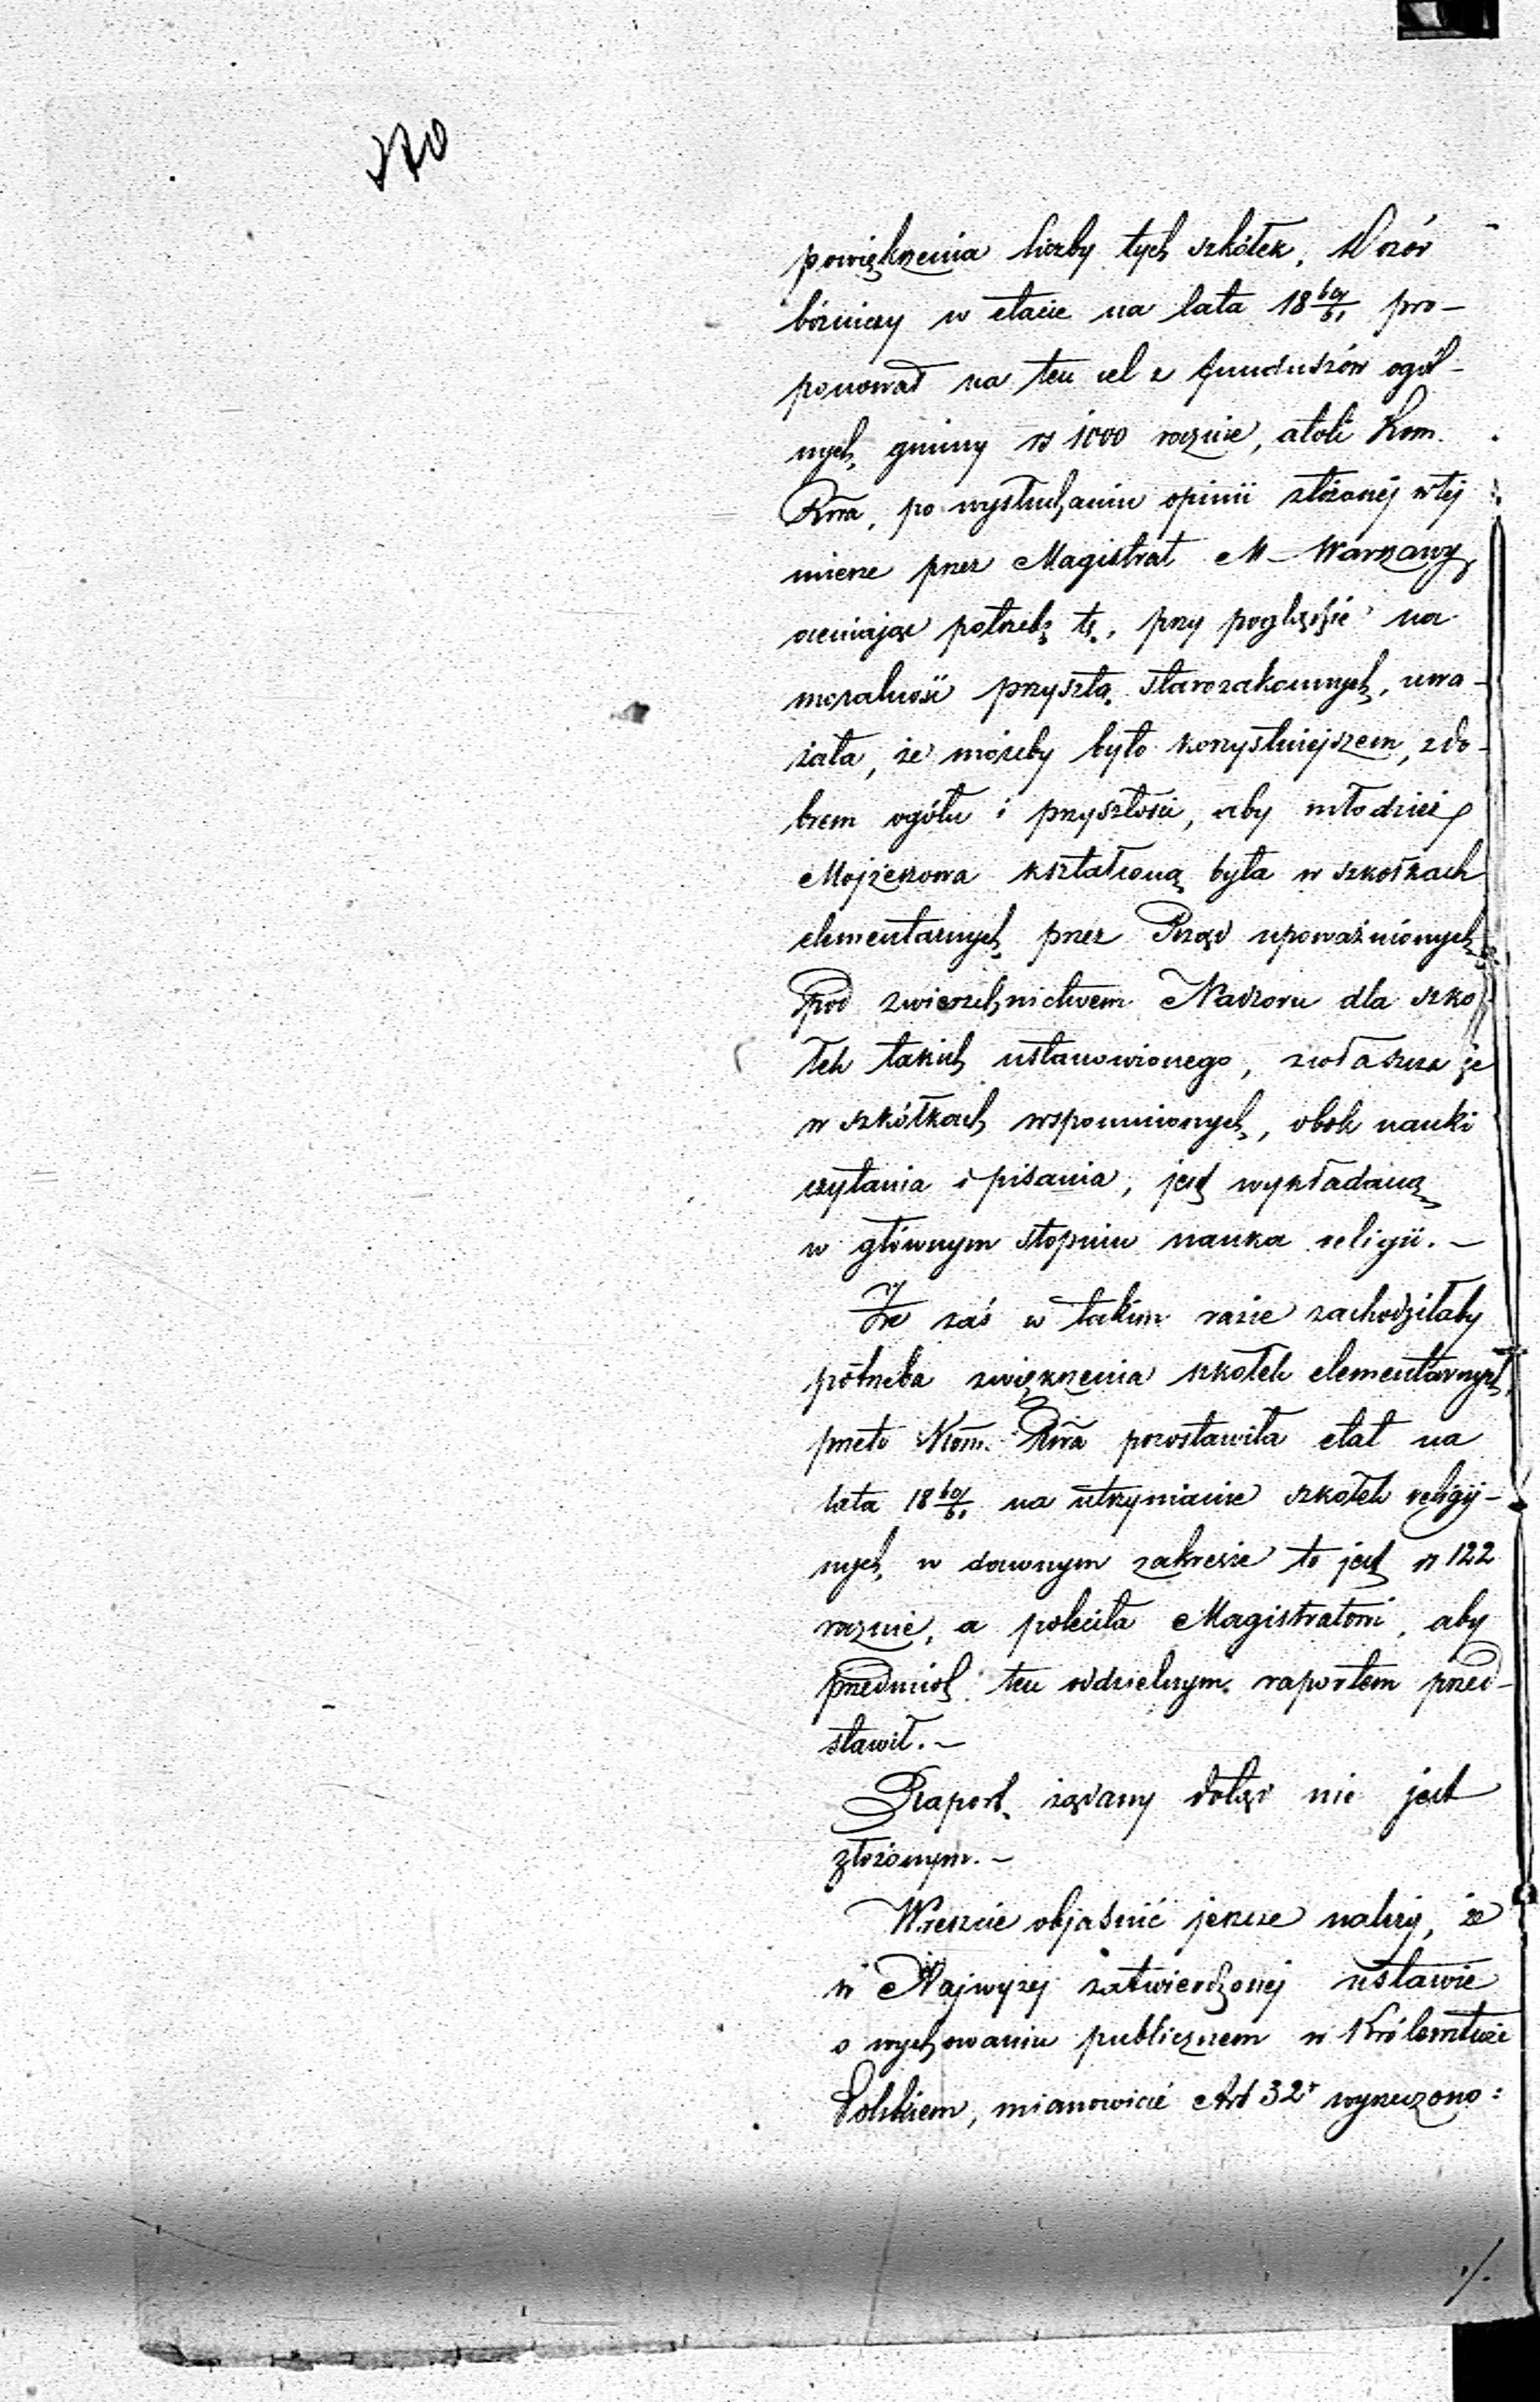 270
powiększenia liczby tych szkółek, Dozór
bóżniczy w etacie na lata 18 60/61 pro-
ponował na ten cel z funduszów ogól-
nych gminy rs 1000 rocznie, atoli Kom.
Rzwa, po wysłuchaniu opinii złożonéj w téj
mierze przez Magistrat M. Warszawy,
oceniając potrzebę tę, przy poglądzie na
moralność przyszłą starozakonnych, uwa-
żała, że możeby było korzystniejszem, z do-
brem ogółu i przyszłości, aby młodzież
Mojżeszowa kształconą była w szkółkach
elementarnych przez Rząd upoważnionych
pod zwierzchnictwem Nadzoru dla szkó-
łek takich ustanowionego, zwłaszcza że
w szkółkach wspomnionych, obok nauki
czytania i pisania, jest wykładaną
w głównym stopniu nauka religii. –
Że zaś w takim razie zachodziłaby
potrzeba zwiększenia szkółek elementarnych,
przeto Kom. Rzwa pozostawiła etat na
lata 18 60/61 na utrzymanie szkółek religij-
nych, w dawnym zakresie to jest rs 122
rocznie, a poleciła Magistratowi, aby
przedmiot ten oddzielnym raportem przed-
stawił. –
Raport żądany dotąd nie jest
złożonym. –
Wreszcie objaśnić jeszcze należy, że
w Najwyżej zatwierdzonej ustawie
o wychowaniu publicznem w Królestwie
Polskiem, mianowicie Art 32 wyrzeczono:
./.